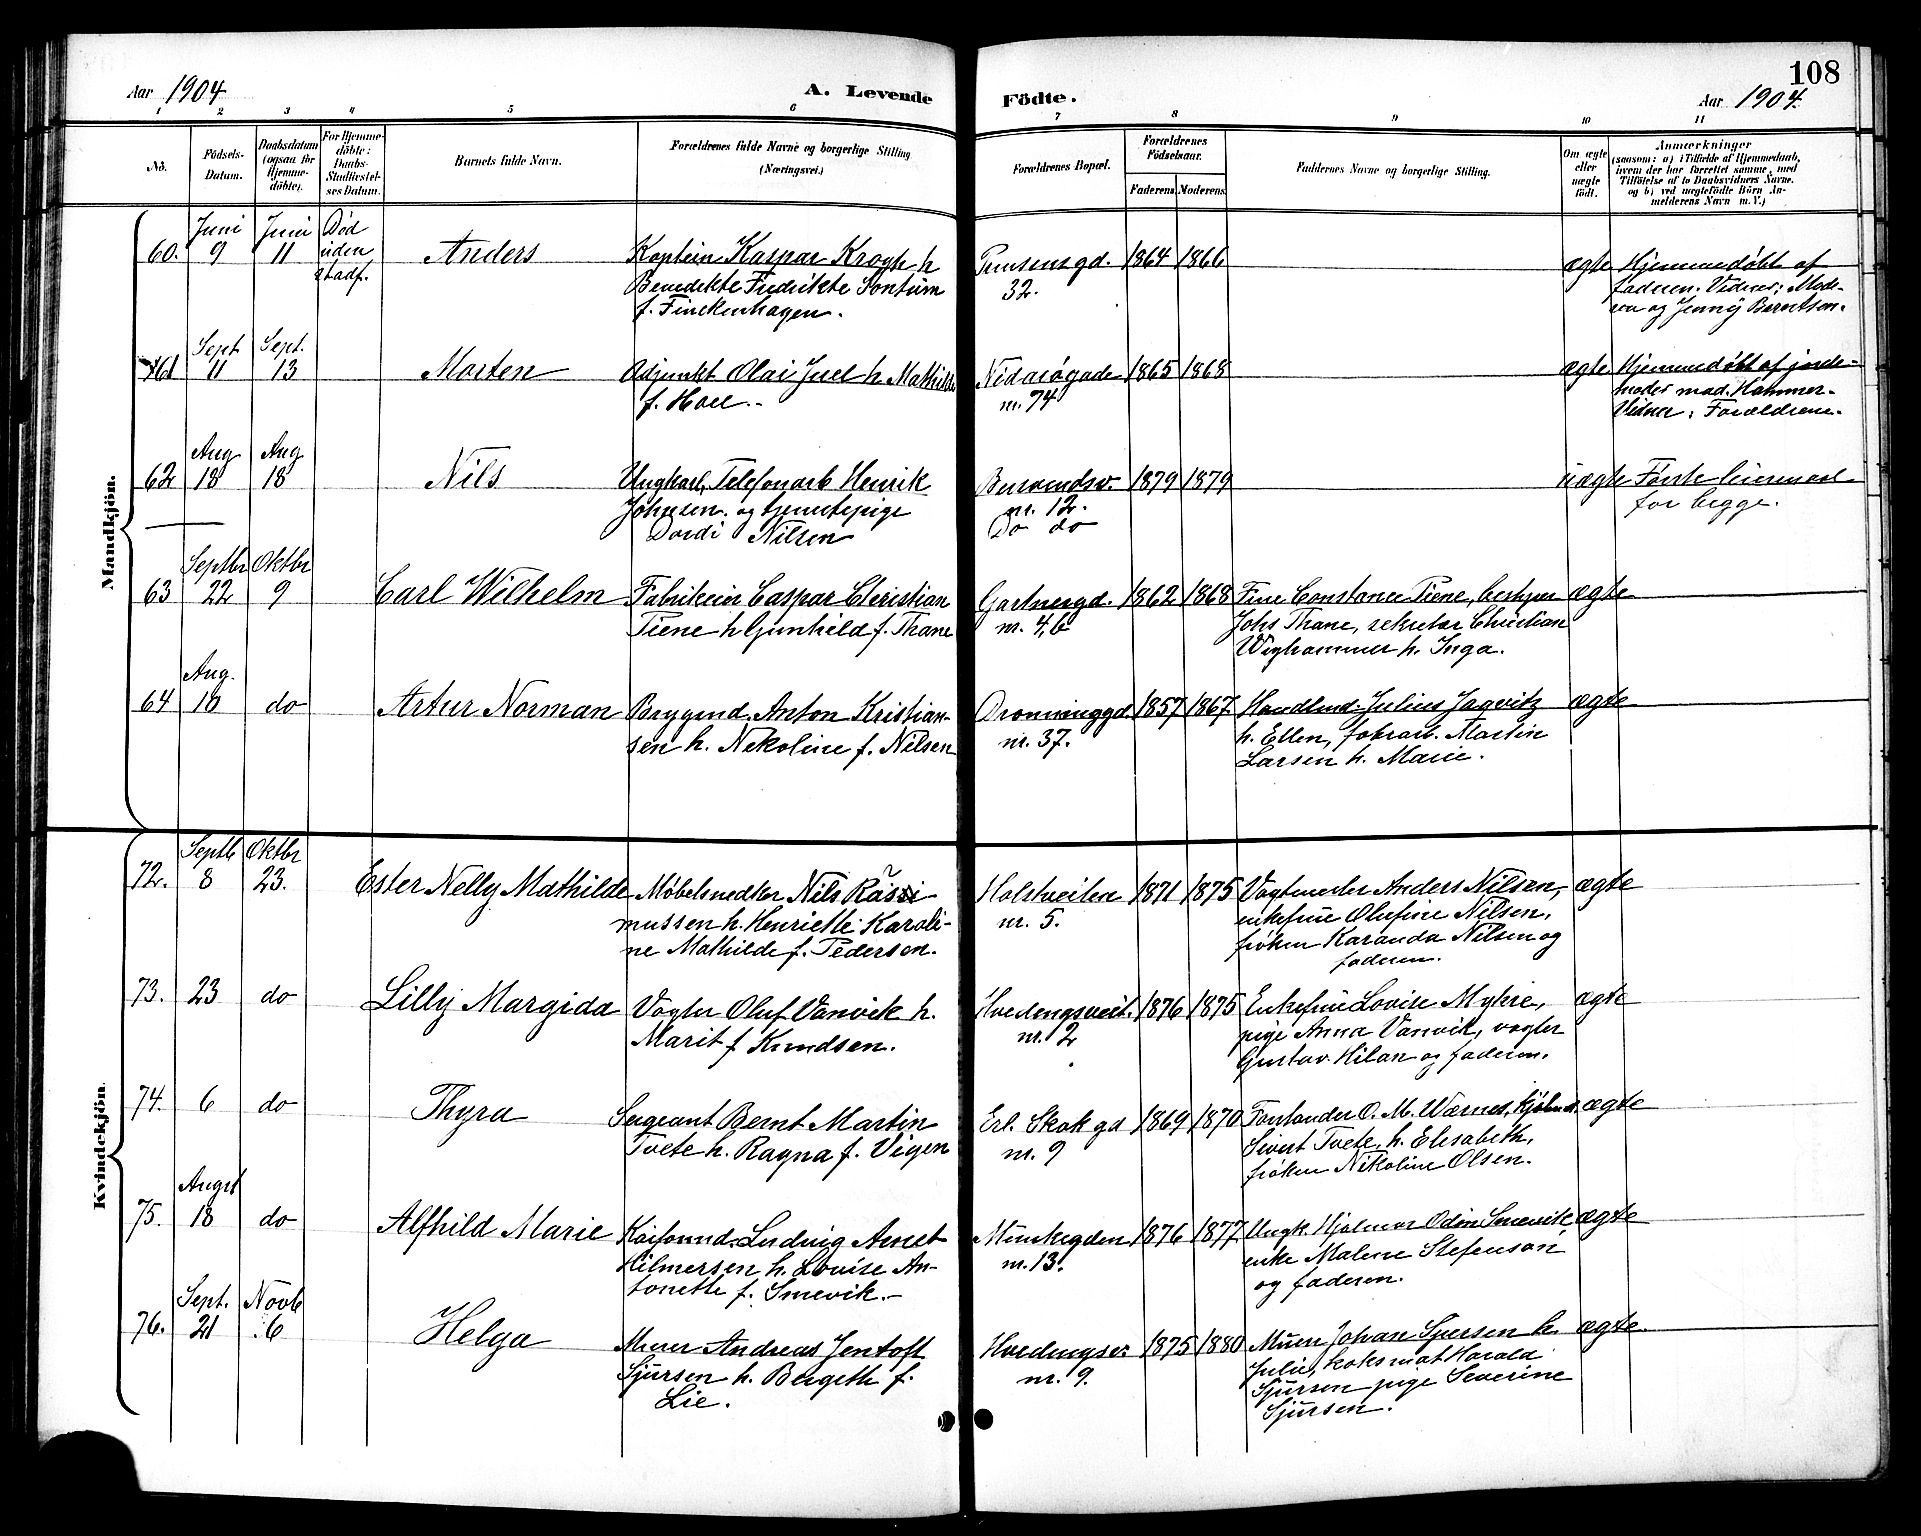 108
Aar 1904
A. Levende
Fødte.
Aar 1904.
1 2 3 4 5 6 7 8 9 10 11
No.
Fødsels-
Datum.
Daabsdatum
(ogsaa for
Hjemme-
døbte).
For Hjemme-
døbte:
Daabs-
Stadfæstel-
ses Datum.
Barnets fulde Navn.
Forældrenes fulde Navne og borgerlige Stilling
(Næringsvei.)
Forældrenes Bopæl.
Forældrenes
Fødselsaar.
Faderens. Moderens.
Faddernes Navne og borgerlige Stilling.
Om ægte
eller
uægte
født.
Anmærkninger
(saasom: a) i Tilfælde af Hjemmedaab,
hvem der har forrettet samme, med
Tilføielse af to Daabsvidners Navne.
og b) ved uægtefødte Børn An-
melderens Navn m. V.)
Mandkjøn.
Juni Juni Død
60. 9 11 uden Anders Kaptein Kaspar Krogh h
stadf.
Benedikte Fredrikte Sontum
f. Finckenhagen.
gd. 1864 1866 ægte Hjemmedøbt af
32.
faderen. Vidner: Mode-
ren og Jenny Berntsen.
Sept Sept.
61 11 13 Morten Adjunkt Olai Juel h Mathilde
f. Hoel.
Nidarøgade 1865 1868 ægte Hjemmedøbt af jorde-
nr. 74
moder mad. Hammer.
Vidner: Forældrene.
Aug Aug
62 18 18 Nils Ungkarl, Telefonarb Henrik
Johnsen. og tjenestepige
Dordi Nilsen
1879 1879 uægte Første leiermaal
nr. 12.
for begge.
Do do
Septbr Oktbr
63 22 9 Carl Wilhelm Fabrikeier Caspar Christian
Tiene h Gunhild f. Thane
Gartnergd. 1862 1868 Fine Constance Tiene,
nr. 4,b
Johs Thane, sekretær Christian
Wighammer h. Inga.
ægte
Aug.
64 10 do Artur Norman Bryggmd. Anton Kristian-
sen h. Nekoline f. Nilsen
Dronninggd. 1857 1867 Handlsmd. Julius Jagvitz
nr. 37.
h. Ellen, Martin
Larsen h. Marie.
ægte
Kvindekjøn.
Septb Oktbr
72. 8 23. Ester Nelly Mathilde Møbelsnedker Nils Ras
mussen h. Henriette Karoli-
ne Mathilde f. Pedersen.
Holstveiten 1871 1875 Vagtmester Anders Nilsen,
nr. 5.
enkefrue Olufine Nilsen,
frøken Karanda Nilsen og
faderen.
ægte
73. 23 do Lilly Margida Vogter Oluf Vanvik h.
Marit f Knudsen.
Hvedingsveit. 1876 1875 Enkefrue Lovise Myhre,
nr. 2
pige Anna Vanvik, vogter
Gustav Hilan og faderen.
ægte
74. 6 do Thyra Sergeant Bernt Martin
Tvete h. Ragna f. Vigen
Erl. Skak gd 1869 1870 Forstander O. M. Wærnes,
nr. 9
Sivert Tvete, h. Elisabeth,
frøken Nikoline Olsen.
ægte
Augst
75. 18 do Alfhild Marie Ludvig Arnet
Hilmersen h. Lovise An-
tonette f. Smevik.
Munkegden 1876 1877 Ungk. Hjalmar Odin Smevik
nr. 13.
enke Malene Stefenson
og faderen.
ægte
Sept. Novb
76. 21 6 Helga Murer Andreas Jentoft
Sjursen h. Bergith f.
Lie.
Hvedingsv. 1875 1880 Murer Johan Sjursen h.
nr. 9.
Julie, koksmat Harald
Sjursen pige Severine
Sjursen.
ægte